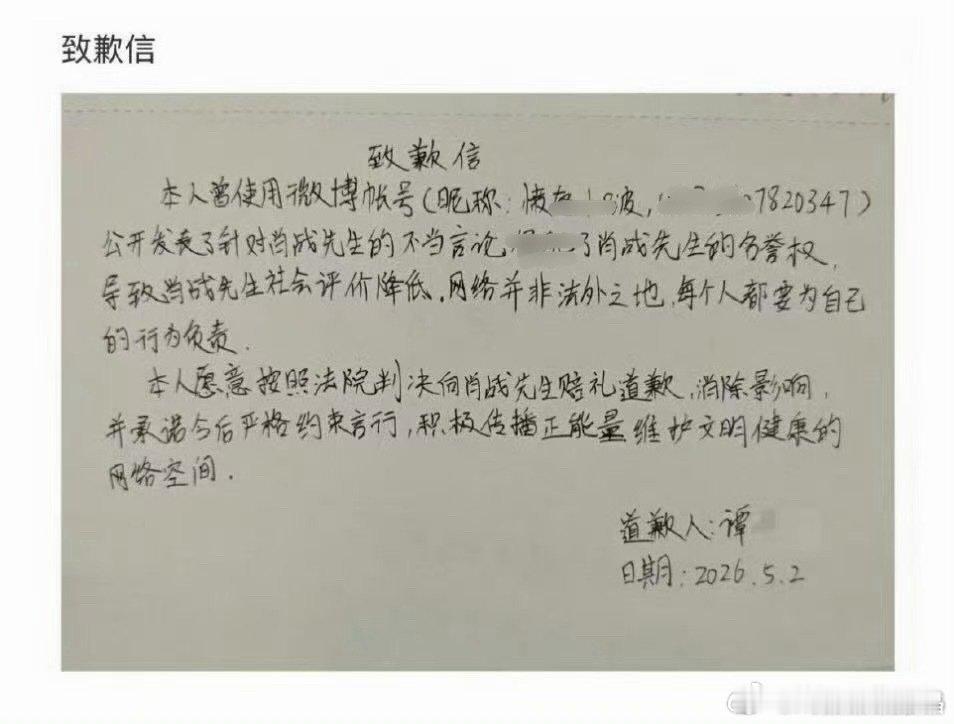 致歉信
致歉信
本人曾使用微博帐号(昵称:波,7820347)
公开发表了针对肖战先生的不当言论了肖战先生的名誉权,
导致肖战先生社会评价降低.网络并非法外之地,每个人都要为自己
的行为负责.
本人愿意按照法院判决向肖战先生赔礼道歉,消除影响,
并承诺今后严格约束言行,积极传播正能量维护文明健康的
网络空间.
道歉人:谭
日期:2026.5.2